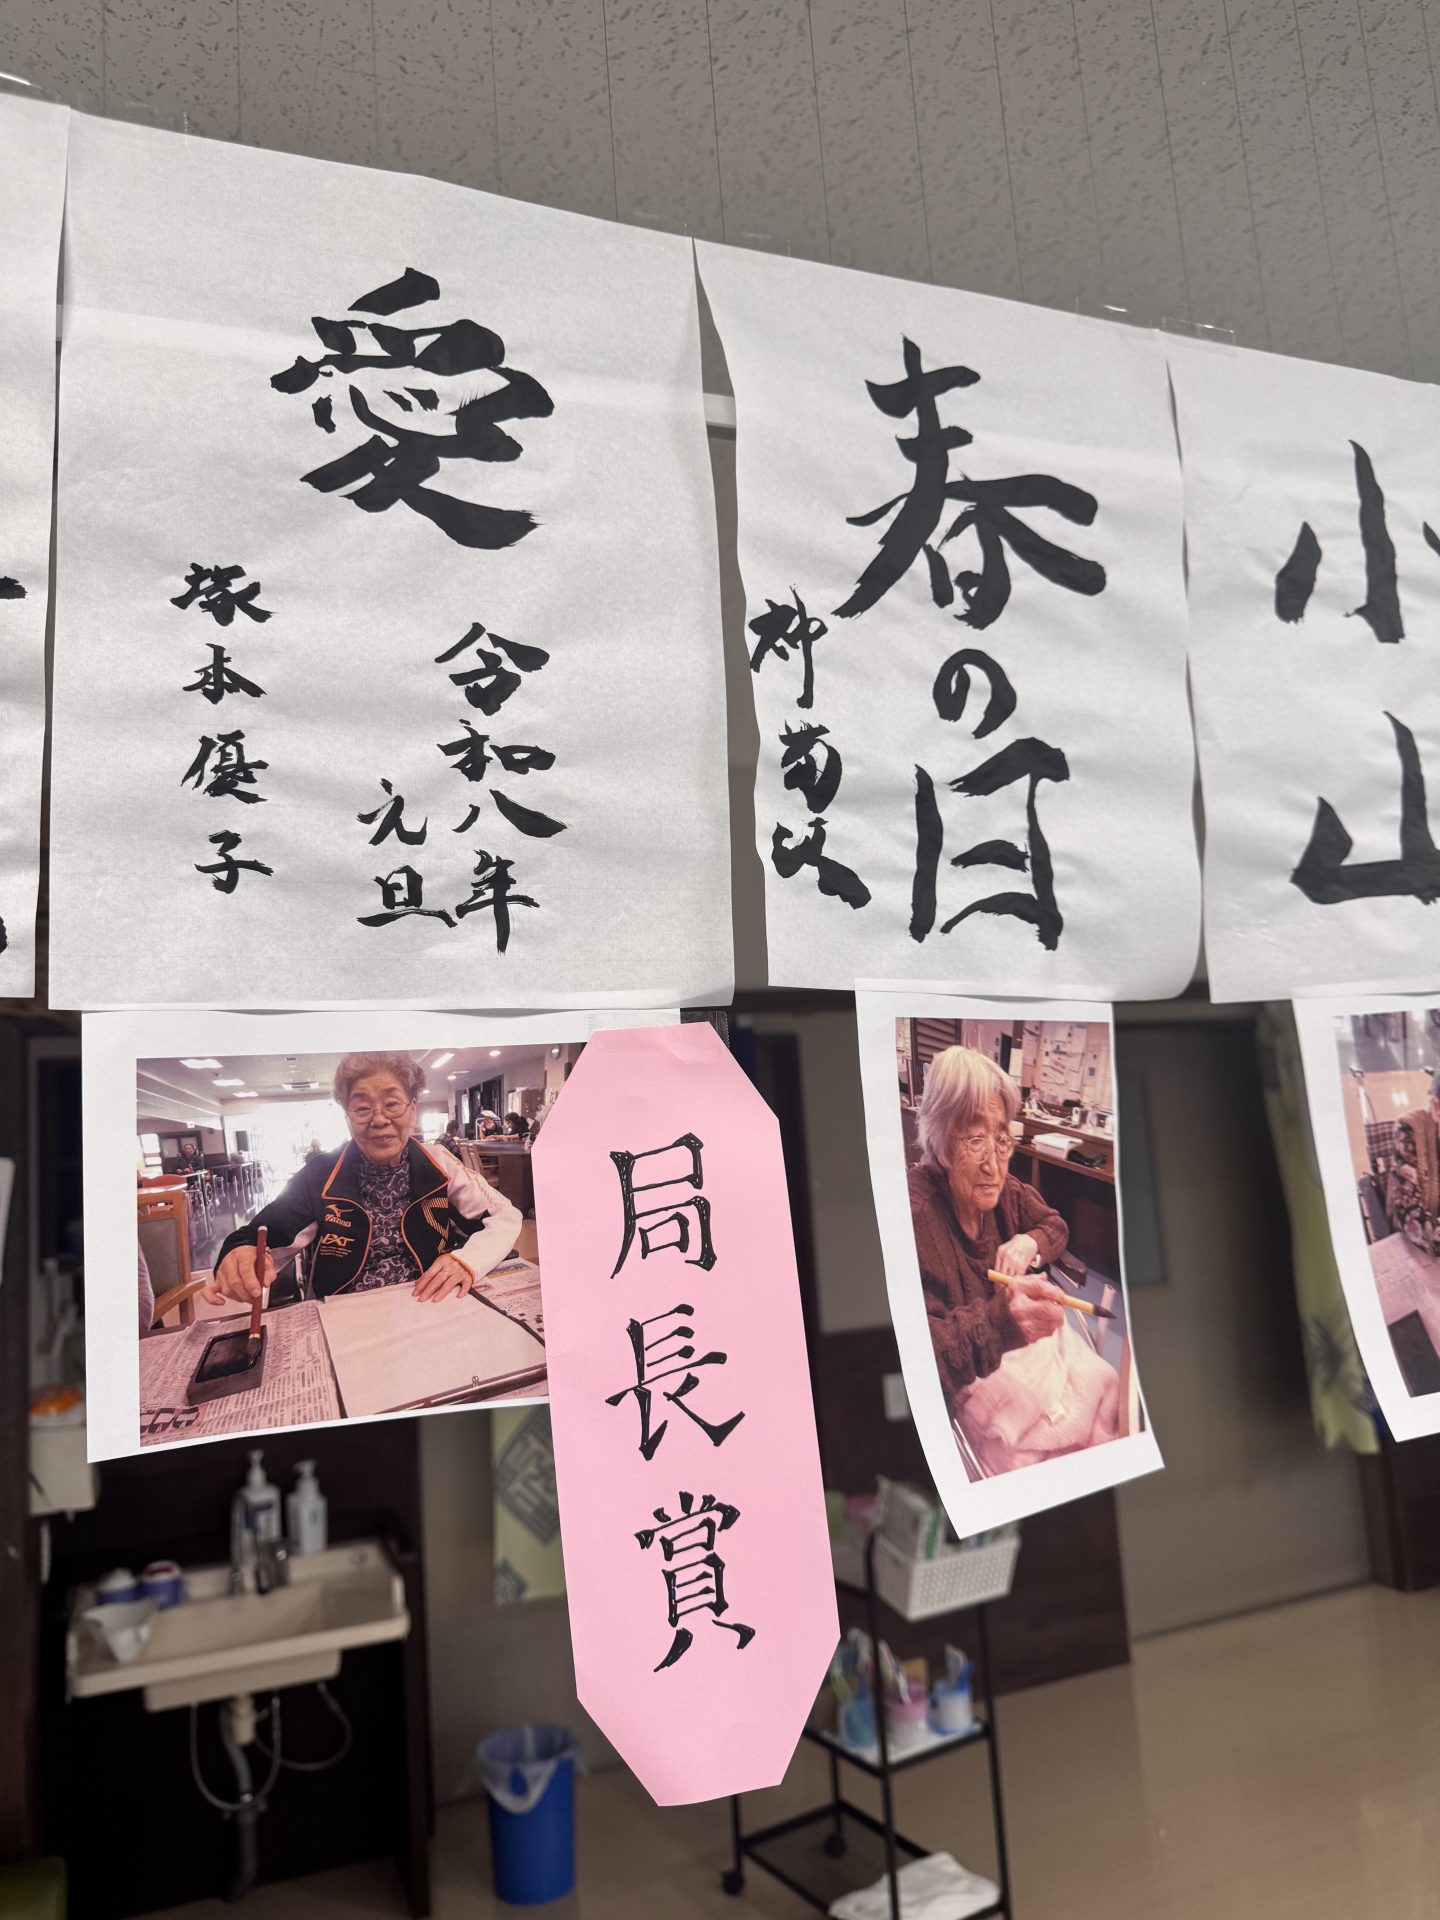 愛
令和八年
元旦
塚本優子
春の日
神菊以
小
山
局長賞
MIZUNO
NXT